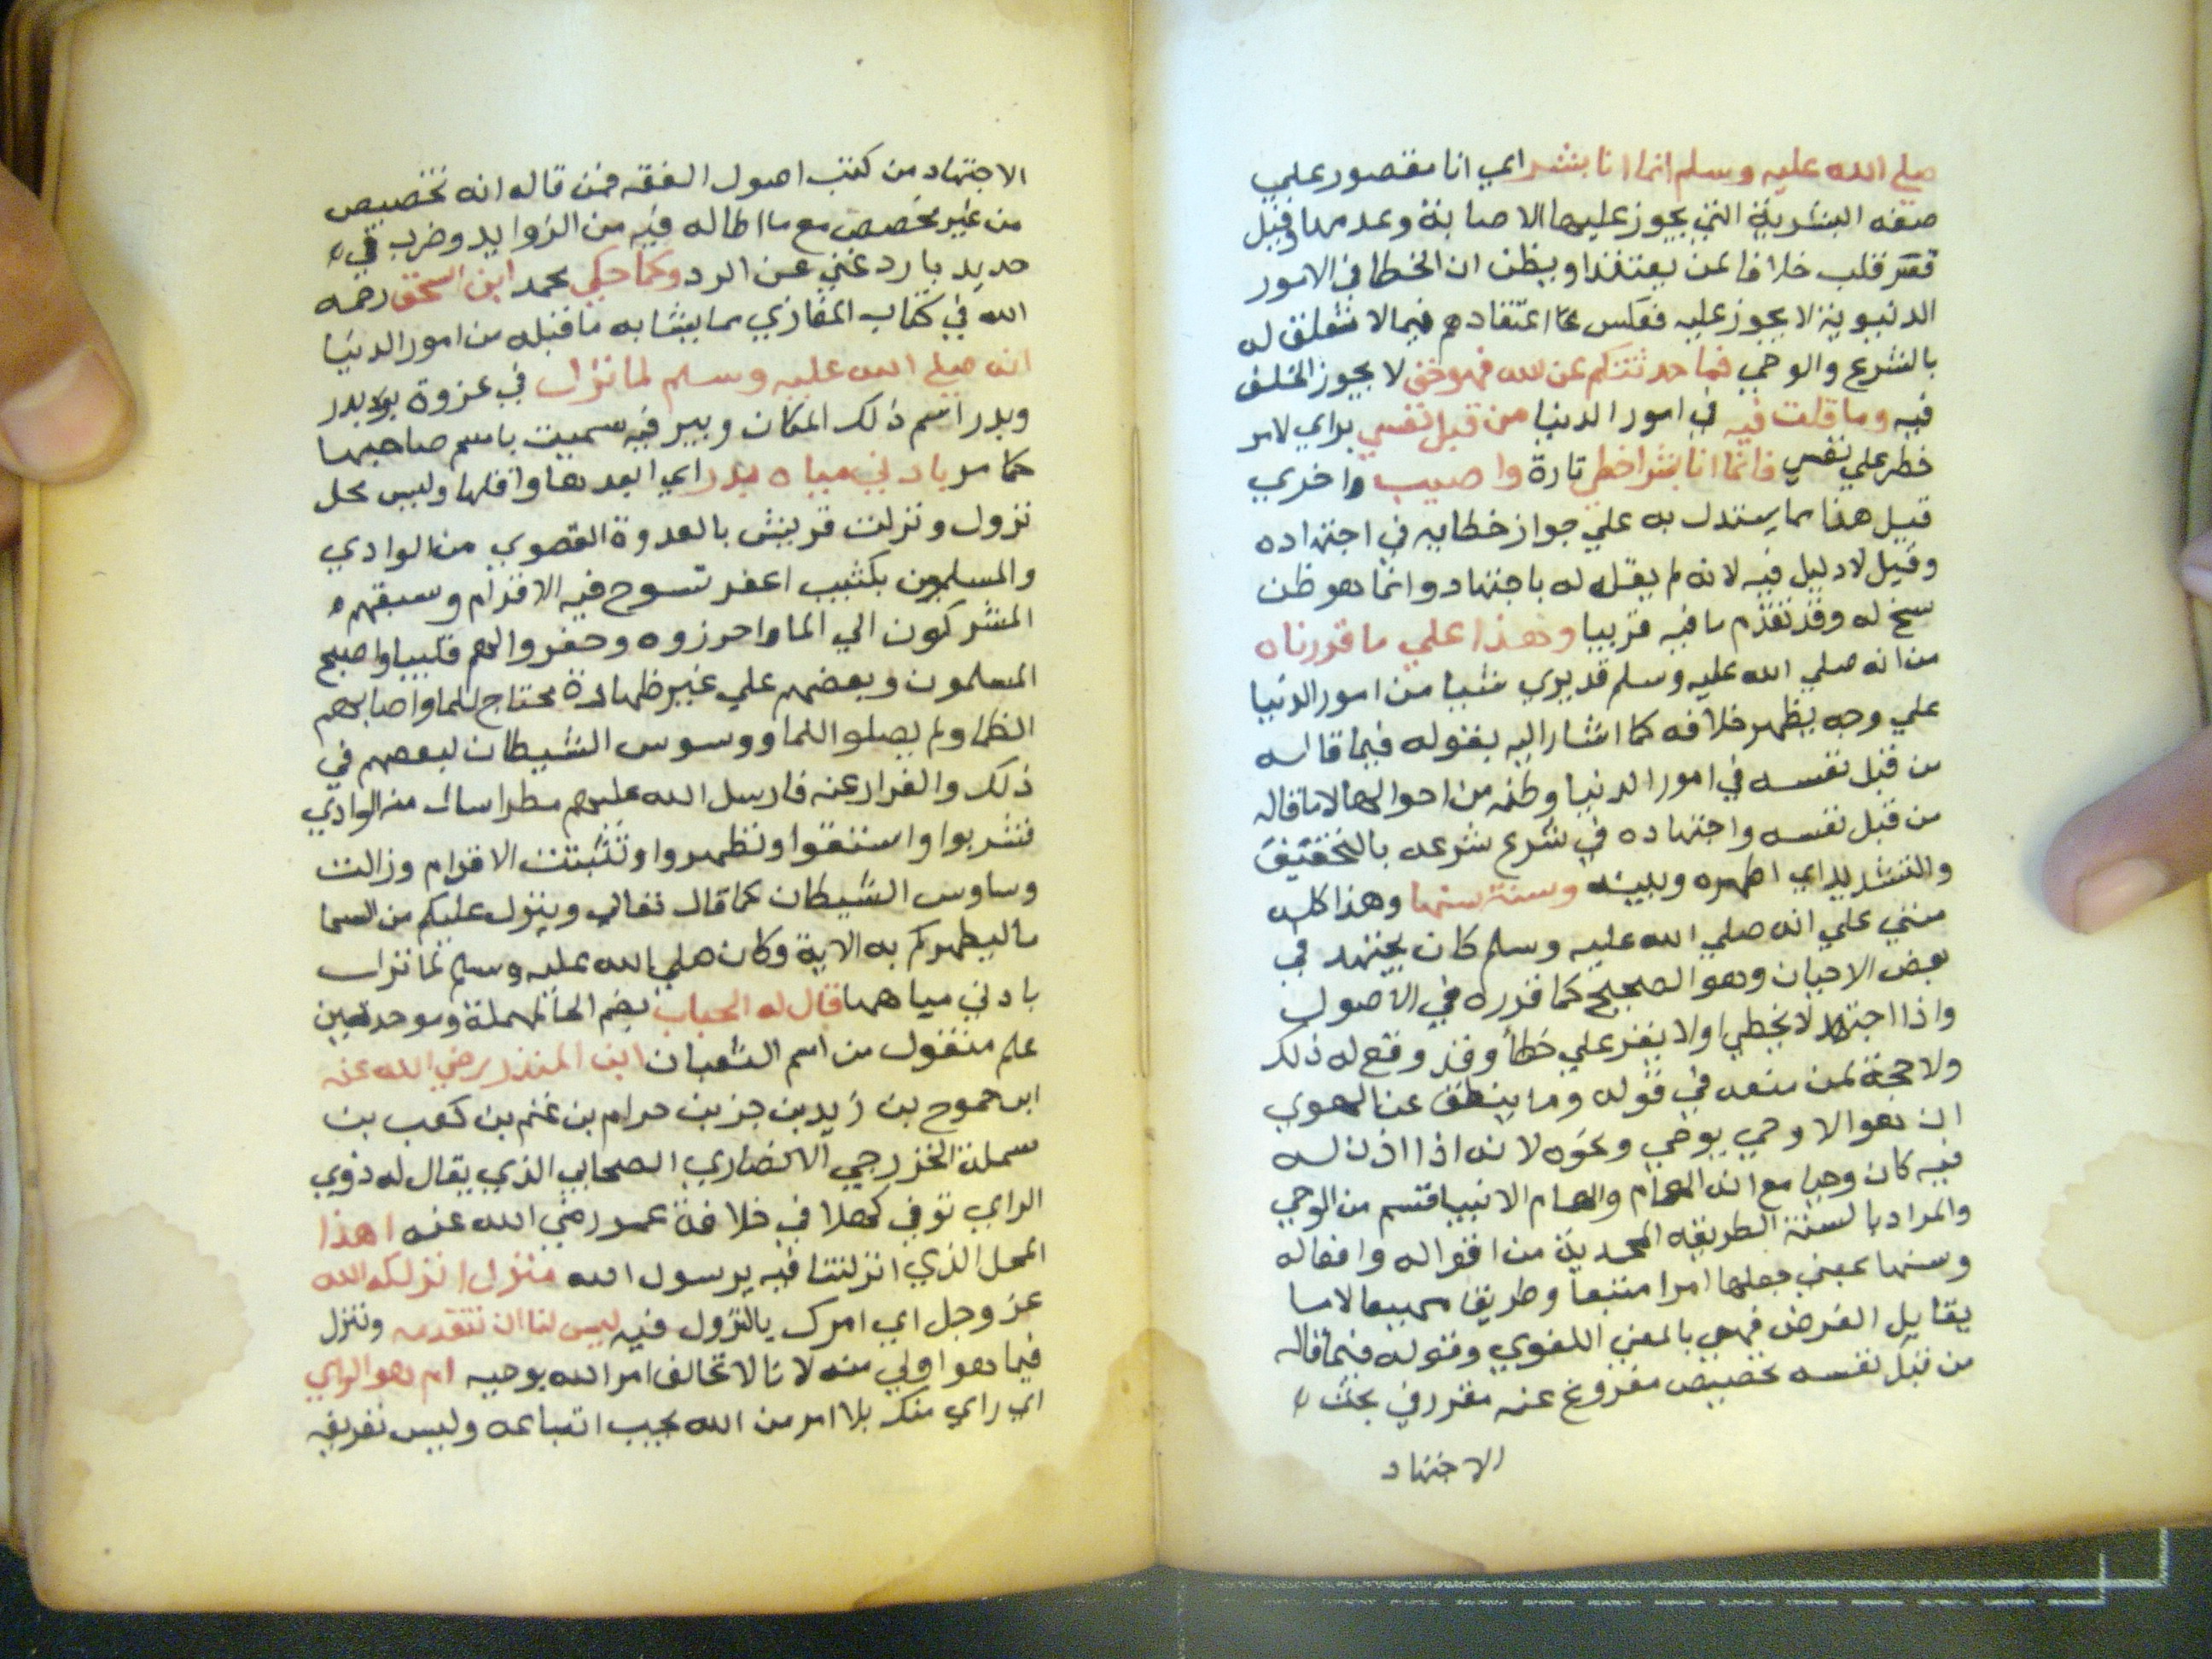 صلي الله عليه وسلم انما انا بشر اي انا مقصور علي
صفة البشرية التي يجوز عليها الاصابة وعدمها وقيل
قصر قلب خلافا لمن يعتقد او يظن ان الخطا في الامور
الدنيوية لا يجوز عليه فعكس اعتقادهم فيما لا تتعلق له
بالشرع والوحي فما حدثتكم عن الله فهو حق لا يجوز الخلف
فيه وما قلت فيه في امور الدنيا من قبل نفسي براي لامر
خطر علي نفسي فانما انا بشر اخطي تارة واصيب اخري
قيل هذا مما يستدل به علي جواز خطايه في اجتهاده
وقيل لا دليل فيه لانه لم يقله له باجتهاد وانما هو ظن
سنح له وقد تقدم ما فيه قريبا وهذا علي ما قررناه
من انه صلي الله عليه وسلم قد يري شيا من امور الدنيا
علي وجه يظهر خلافه كما اشار اليه بقوله فيما قاله
من قبل نفسه في امور الدنيا وظنه من احوالها لا ما قاله
من قبل نفسه واجتهاده في شرع شرعه بالتخفيف
والتشديد اي اظهره وبينه وسنة سنها وهذا كله
مبني علي انه صلي الله عليه وسلم كان يجتهد في
بعض الاحيان وهو الصحيح كما قرره في الاصول
واذا اجتهد لا يخطي او لا يقر علي خطأ وقد وقع له ذلك
ولا حجة لمن منعه في قوله وما ينطق عن الهوي
ان هو الا وحي يوحي ونحوه لانه اذا اذن له
فيه كان وحيا مع انه الهام والهام الانبيا قسم من الوحي
والمراد بالسنة الطريقة المحمدية من اقواله وافعاله
وسنها بمعني جعلها امرا متبعا وطريقا مهيعا لا ما
يقابل الفرض فهي بالمعني اللغوي وقوله فيما قاله
من قبل نفسه تخصيص مفروغ عنه مقرر في بحث
الاجتهاد
الاجتهاد من كتب اصول الفقه فمن قال انه تخصيص
من غير مخصص مع ما اطاله فيه من الزوايد وضرب في
حديد بارد غني عن الرد وكما حكي محمد ابن اسحق رحمه
الله في كتاب المغازي مما يشابه ما قبله من امور الدنيا
انه صلي الله عليه وسلم لما نزل في غزوة بدر
وبدر اسم ذلك المكان وبير فيه سميت باسم صاحبها
كما مر بادني مياه بدر اي ابعدها واقلها وليس محل
نزول ونزلت قريش بالعدوة القصوي من الوادي
والمسلمون بكثيب اعفر تسوح فيه الاقدام وسبقهم
المشركون الي الما واحرزوه وحفروا لهم قليبا واصبح
المسلمون وبعضهم علي غير طهارة محتاج للما واصابهم
الظما ولم يصلوا للما ووسوس الشيطان لبعضهم في
ذلك والفرار عنه فارسل الله عليهم مطرا سال منه الوادي
فشربوا واستقوا وتطهروا وتثبتت الاقدام وزالت
وساوس الشيطان كما قال تعالي وينزل عليكم من السما
ما ليطهركم به الاية وكان صلي الله عليه وسلم لما نزل
بادني مياهها قال له الحباب بضم الحا المهملة وموحدتين
علم منقول من اسم الثعبان ابن المنذر رضي الله عنه
ابن حموح بن زيد بن حزبن حرام بن غنم بن كعب بن
سملة الخزرجي الانصاري الصحابي الذي يقال له ذوي
الراي توفي كهلا في خلافة عمر رضي الله عنه اهذا
المحل الذي انزلتنا فيه يرسول الله منزل انزلكه الله
عز وجل اي امرك بالنزول فيه ليس لنا ان نتقدمه وننزل
فيما هو اولي منه لانا لا نخالف امر الله بوحيه ام هو الراي
اي راي منك بلا امر من الله يجب اتباعه وليس تفريقه